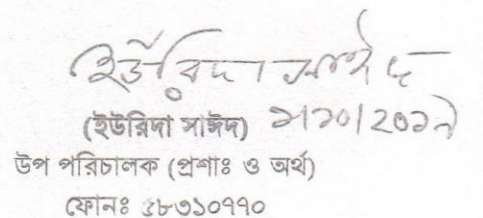 ইউরিদা সাঈদ
(ইউরিদা সাঈদ) ১/১০/২০১৭
উপ পরিচালক (প্রশাঃ ও অর্থ)
ফোনঃ ৫৮৩১০৭৭০